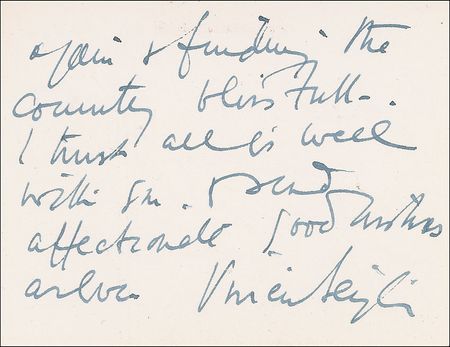 again & finding the
country blissful.
I trust all is well
with you. & send
affectionate good wishes
as ever Vivien Leigh